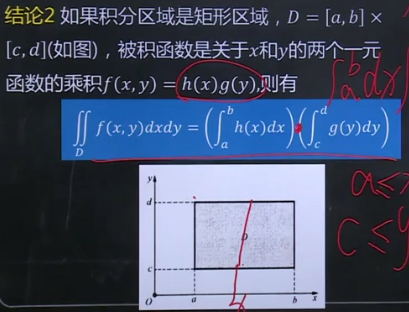 结论2 如果积分区域是矩形区域，D = [a, b] ×
[c, d](如图)，被积函数是关于x和y的两个一元
函数的乘积f(x, y) = h(x)g(y),则有
∫ₐᵇ dx
∬_D f(x, y)dxdy = (∫ₐᵇ h(x)dx)·(∫_c^d g(y)dy)
a≤x
c≤y
y
d
D
c
O a b x